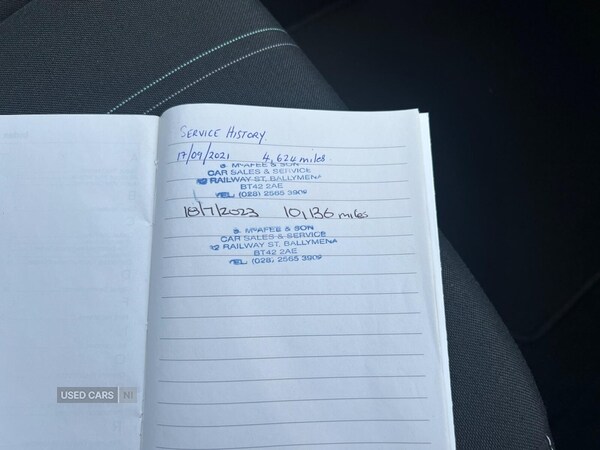 SERVICE HISTORY
17/09/2021 4,624 miles
S. McAFEE & SON
CAR SALES & SERVICE
RAILWAY ST. BALLYMENA
BT42 2AE
TEL: (028) 2565 3909
18/7/2023 10,136 miles
S. McAFEE & SON
CAR SALES & SERVICE
RAILWAY ST. BALLYMENA
BT42 2AE
TEL: (028) 2565 3909
USED CARS NI